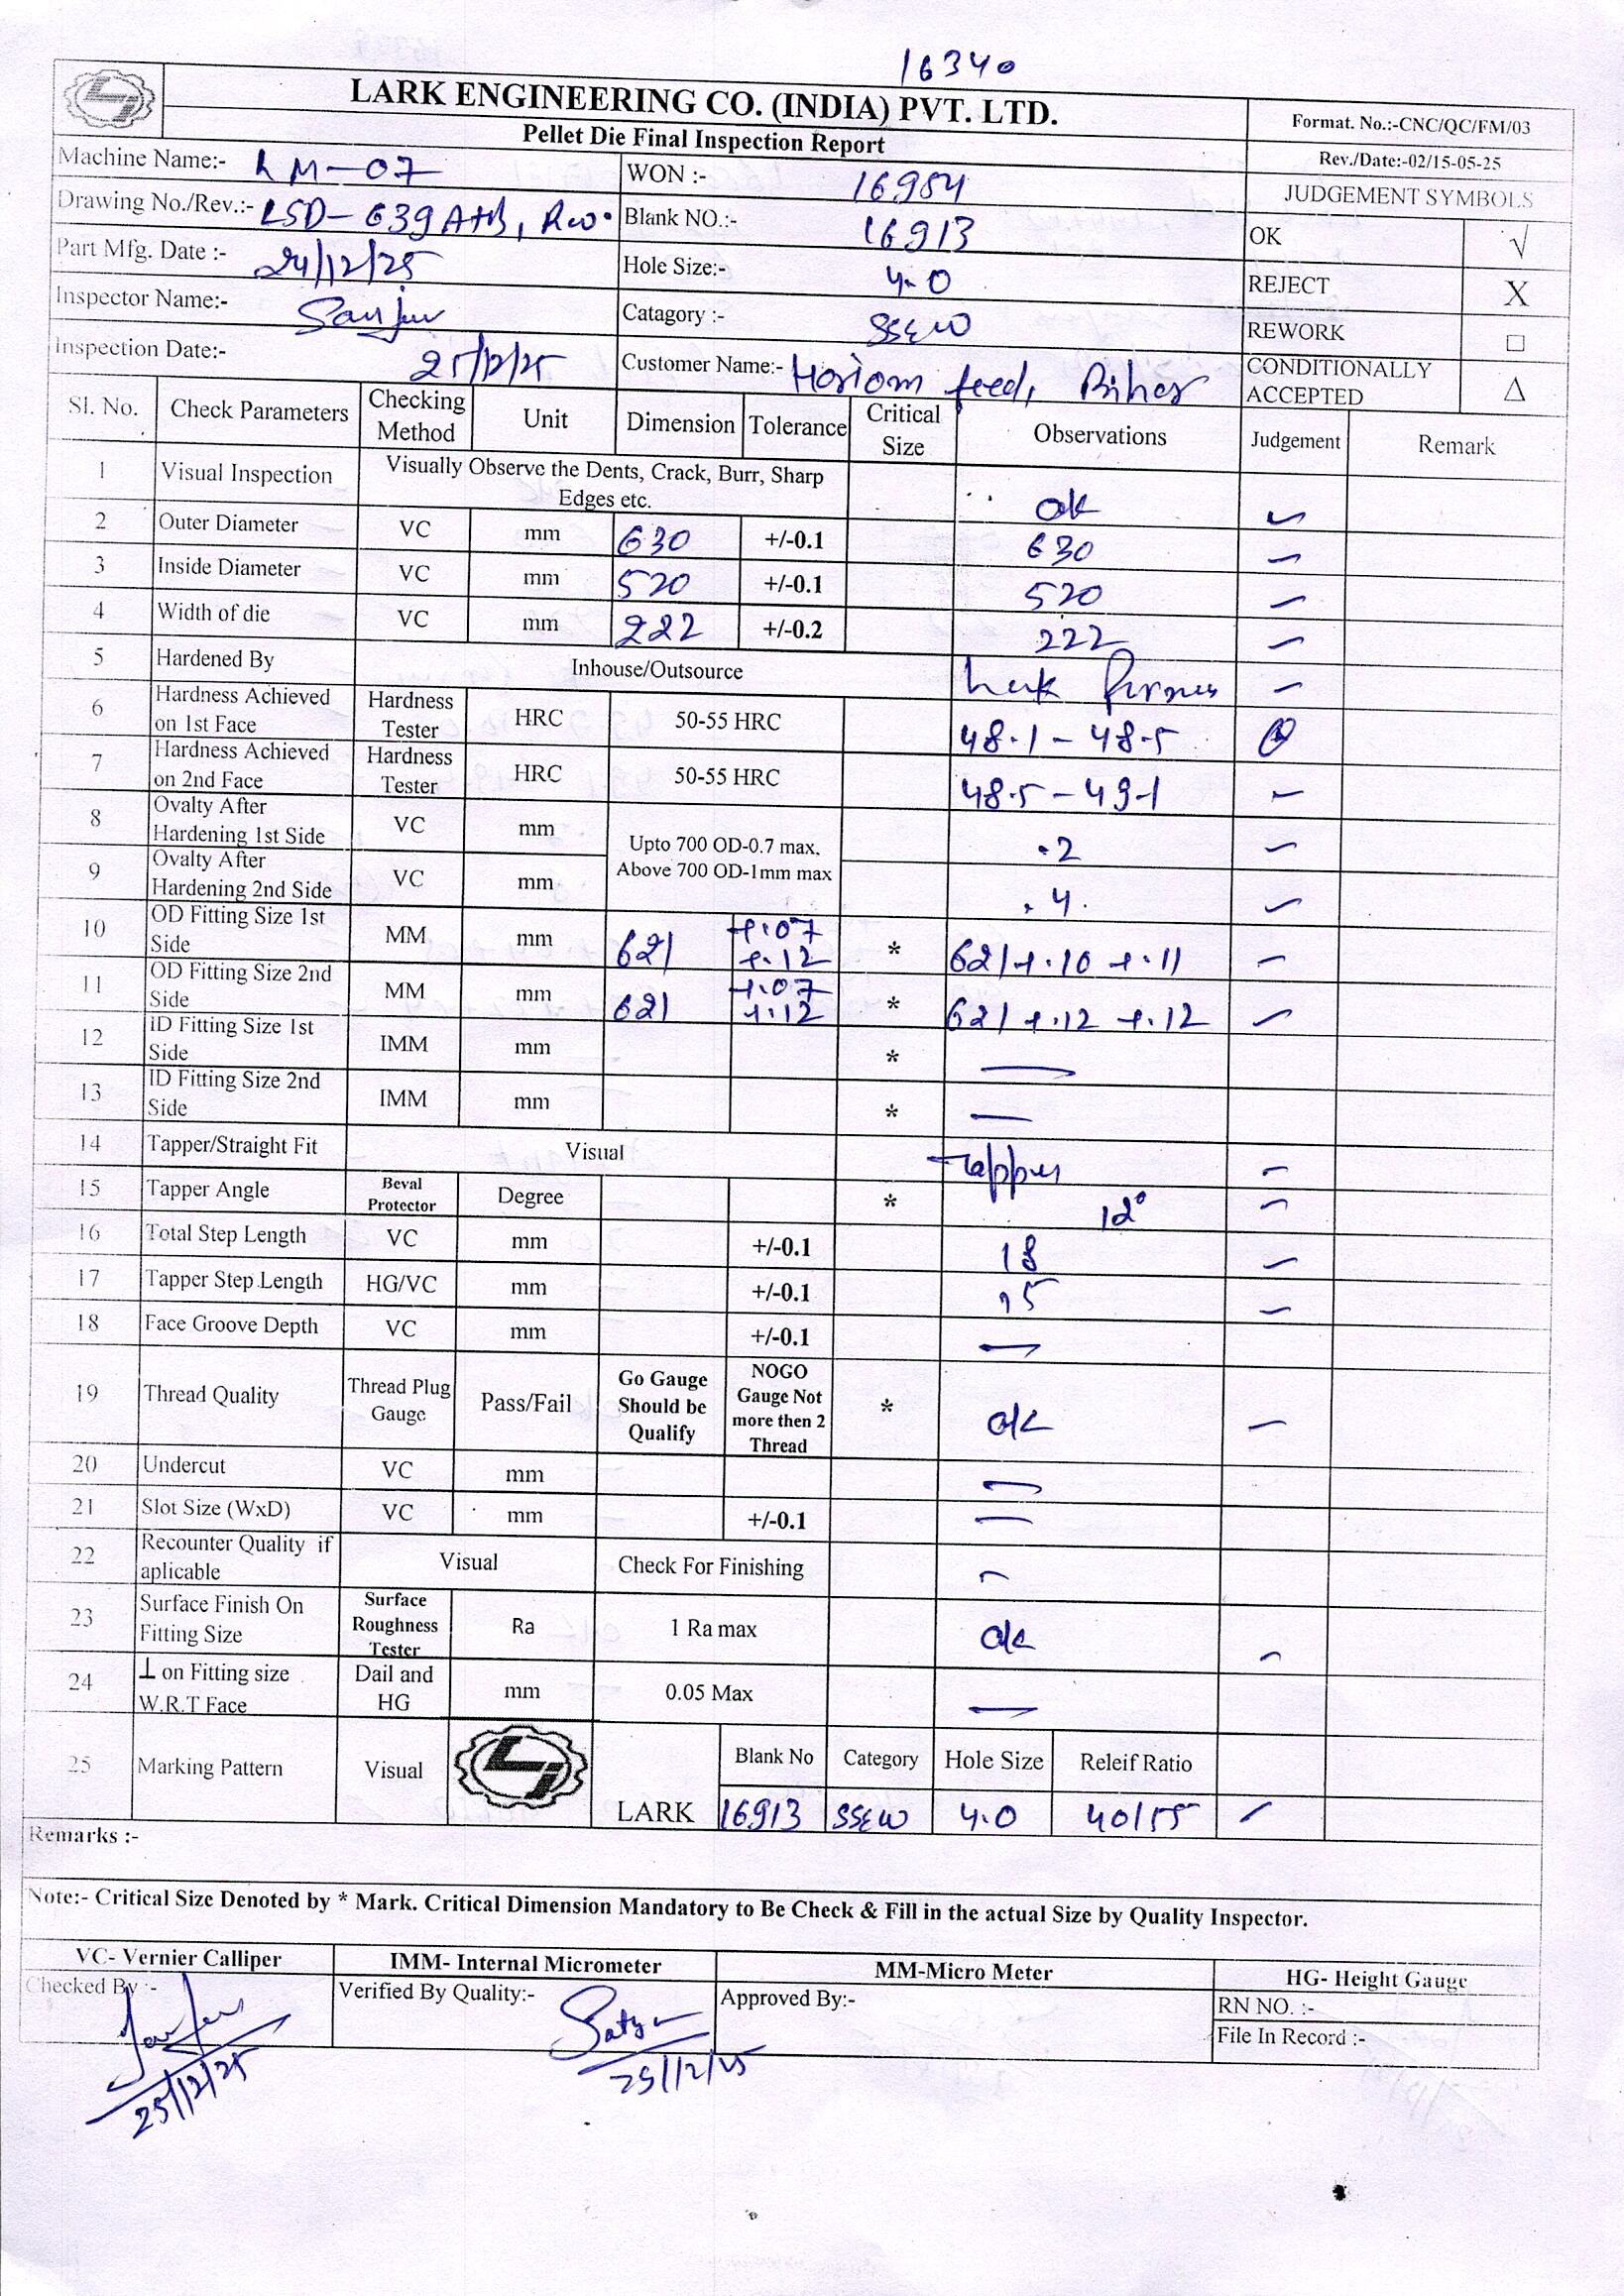 16340
LARK ENGINEERING CO. (INDIA) PVT. LTD.
Pellet Die Final Inspection Report
Format. No.:-CNC/QC/FM/03
Rev./Date:-02/15-05-25
Machine Name:- LM-07
WON :- 16984
JUDGEMENT SYMBOLS
Drawing No./Rev.:- LSD-639 A+B,
Blank NO.:- 16913
OK √
Part Mfg. Date :- 24/12/25
Hole Size:- 4.0
REJECT X
Inspector Name:- Sanjur
Catagory :- SSEW
REWORK □
Inspection Date:- 25/12/25
Customer Name:- Horiom feed, Bihar
CONDITIONALLY ACCEPTED △
Sl. No. Check Parameters Checking Method Unit Dimension Tolerance Critical Size Observations Judgement Remark
1 Visual Inspection Visually Observe the Dents, Crack, Burr, Sharp Edges etc. ok ✓
2 Outer Diameter VC mm 630 +/-0.1 630 ✓
3 Inside Diameter VC mm 520 +/-0.1 520 ✓
4 Width of die VC mm 222 +/-0.2 222 ✓
5 Hardened By Inhouse/Outsource Lark ✓
6 Hardness Achieved on 1st Face Hardness Tester HRC 50-55 HRC 48.1 - 48.5
7 Hardness Achieved on 2nd Face Hardness Tester HRC 50-55 HRC 48.5 - 49.1 ✓
8 Ovalty After Hardening 1st Side VC mm Upto 700 OD-0.7 max, Above 700 OD-1mm max .2 ✓
9 Ovalty After Hardening 2nd Side VC mm .4 ✓
10 OD Fitting Size 1st Side MM mm 621 +.07 +.12 * 621 +.10 +.11 ✓
11 OD Fitting Size 2nd Side MM mm 621 +.07 +.12 * 621 +.12 +.12 ✓
12 iD Fitting Size 1st Side IMM mm * —
13 ID Fitting Size 2nd Side IMM mm * —
14 Tapper/Straight Fit Visual Tapper ✓
15 Tapper Angle Beval Protector Degree * 12° ✓
16 Total Step Length VC mm +/-0.1 18 ✓
17 Tapper Step Length HG/VC mm +/-0.1 15 ✓
18 Face Groove Depth VC mm +/-0.1 —
19 Thread Quality Thread Plug Gauge Pass/Fail Go Gauge Should be Qualify NOGO Gauge Not more then 2 Thread * ok ✓
20 Undercut VC mm —
21 Slot Size (WxD) VC mm +/-0.1 —
22 Recounter Quality if aplicable Visual Check For Finishing —
23 Surface Finish On Fitting Size Surface Roughness Tester Ra 1 Ra max ok ✓
24 ⊥ on Fitting size W.R.T Face Dail and HG mm 0.05 Max —
25 Marking Pattern Visual LARK Blank No Category Hole Size Releif Ratio
16913 SSEW 4.0 40/15 ✓
Remarks :-
Note:- Critical Size Denoted by * Mark. Critical Dimension Mandatory to Be Check & Fill in the actual Size by Quality Inspector.
VC- Vernier Calliper IMM- Internal Micrometer MM-Micro Meter HG- Height Gauge
Checked By :- Verified By Quality:- Satya Approved By:- RN NO. :-
File In Record :-
25/12/25 25/12/25